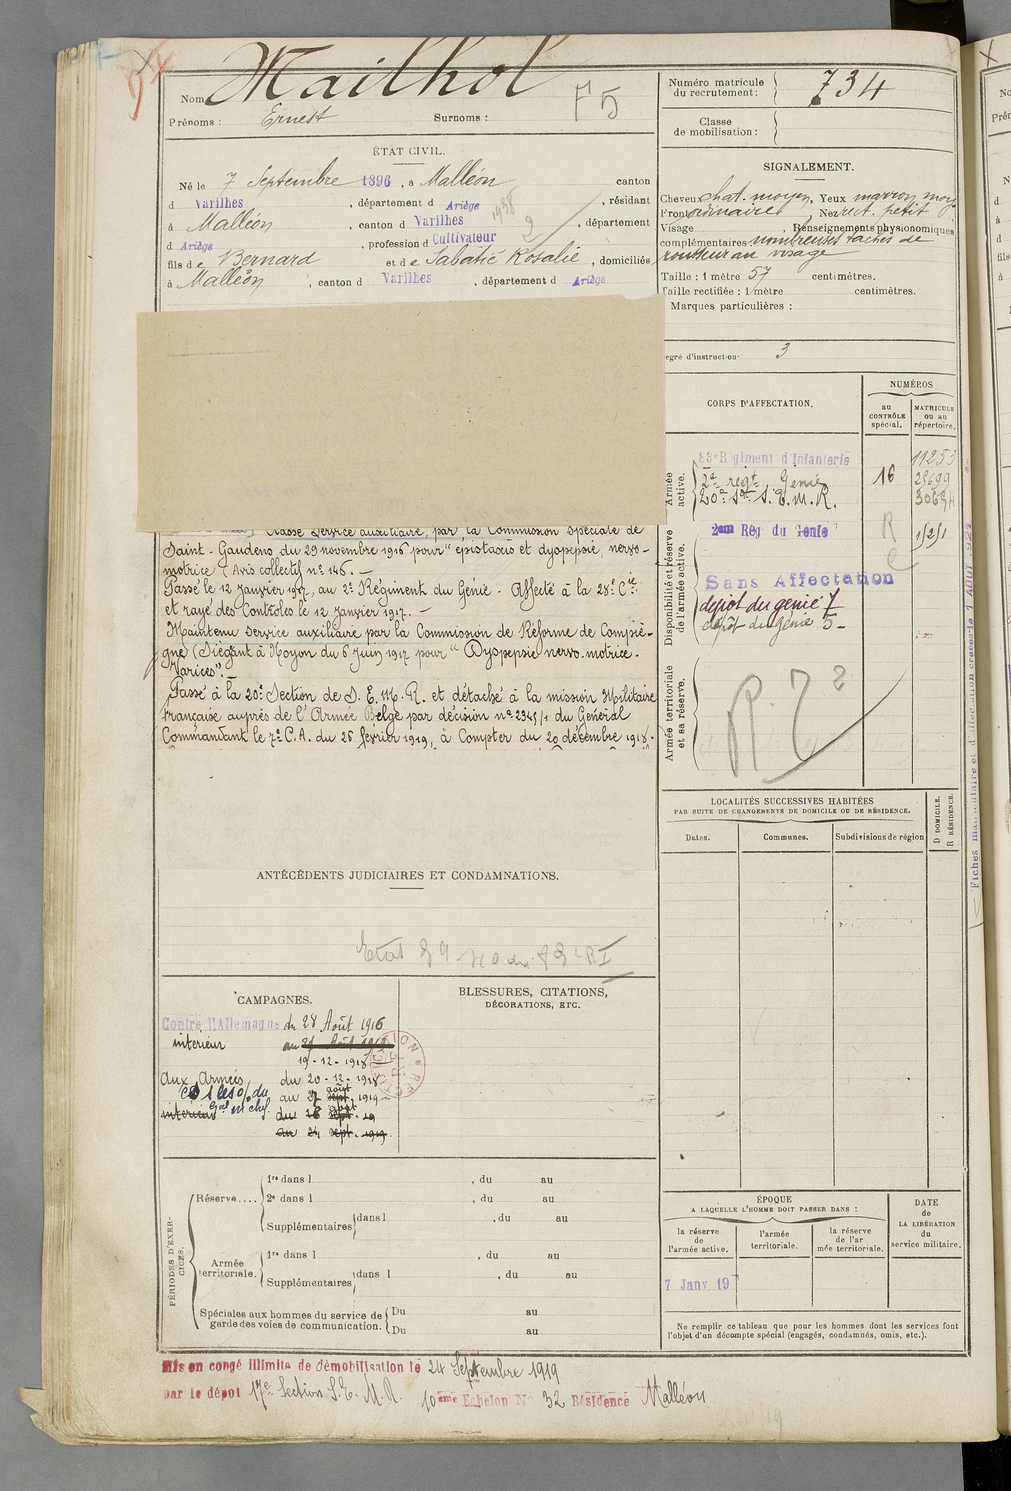 Nom Mailhol
Prénoms : Ernest Surnoms :
F5
Numéro matricule du recrutement : 734
Classe de mobilisation :
ÉTAT CIVIL.
Né le 7 Septembre 1896, à Malléon canton
d Varilhes, département d Ariège, résidant
à Malléon, canton d Varilhes, département
d Ariège, profession d Cultivateur
1938
2
fils de Bernard et de Sabatié Rosalie, domiciliés
à Malléon, canton d Varilhes, département d Ariège
SIGNALEMENT.
Cheveux chat. moyen, Yeux marron moy.
Front ordinaire, Nez rect. petit
Visage , Renseignements physionomiques
complémentaires nombreuses taches de
rousseur au visage
Taille : 1 mètre 57 centimètres.
Taille rectifiée : 1 mètre centimètres.
Marques particulières :
egré d'instruction 3
Classé Service auxiliaire, par la Commission Spéciale de
Saint-Gaudens du 29 novembre 1916 pour "épistaxis et dyspepsie nervo-
motrice (Avis collectif n° 146. —
Passé le 12 Janvier 1917, au 2e Régiment du Génie. Affecté à la 28e Cie
et rayé des Contrôles le 12 Janvier 1917. —
Maintenu Service auxiliaire par la Commission de Réforme de Compiè-
gne (Siégant à Noyon du 6 Juin 1917 pour "Dyspepsie nervo-motrice.
Varices". —
Passé à la 20e Section de S. E. M. R. et détaché à la mission Militaire
française auprès de l'Armée Belge par décision n° 2345/1 du Général
Commandant le 7e C.A. du 26 février 1919, à Compter du 20 décembre 1918.
CORPS D'AFFECTATION.
NUMÉROS
au CONTRÔLE spécial.
MATRICULE ou au répertoire.
Armée active.
83e Régiment d'Infanterie 11253
2e régt Génie 16 28699
20e Son S.E.M.R.
Disponibilité et réserve de l'armée active.
2eme Rég du Génie
Sans Affectation
dépôt du génie 7
dépôt du génie 5 -
R
C
Armée territoriale et sa réserve.
R 7 2
LOCALITÉS SUCCESSIVES HABITÉES
PAR SUITE DE CHANGEMENTS DE DOMICILE OU DE RÉSIDENCE.
Dates. Communes. Subdivisions de région
D DOMICILE. R RÉSIDENCE.
ANTÉCÉDENTS JUDICIAIRES ET CONDAMNATIONS.
CAMPAGNES.
Contre l'Allemagne du 28 Août 1916
intérieur au
19-12-1918
Aux Armées du 20-12-1918
au 27 août 1919
intérieur du
au 24 sept. 1919
BLESSURES, CITATIONS,
DÉCORATIONS, ETC.
PÉRIODES D'EXERCICES.
Réserve .... 1re dans l , du au
2e dans l , du au
Supplémentaires dans l , du au
Armée territoriale. 1re dans l , du au
Supplémentaires dans l , du au
Spéciales aux hommes du service de garde des voies de communication. Du au
Du au
ÉPOQUE
A LAQUELLE L'HOMME DOIT PASSER DANS :
la réserve de l'armée active.
l'armée territoriale.
la réserve de l'ar mée territoriale.
DATE de LA LIBÉRATION du service militaire.
7 Janv 19
Ne remplir ce tableau que pour les hommes dont les services font
l'objet d'un décompte spécial (engagés, condamnés, omis, etc.).
Mis en congé illimité de démobilisation le 24 Septembre 1919
par le dépôt 17e Section S. E. M. R. 10eme Echelon N° 32 Résidence Malléon